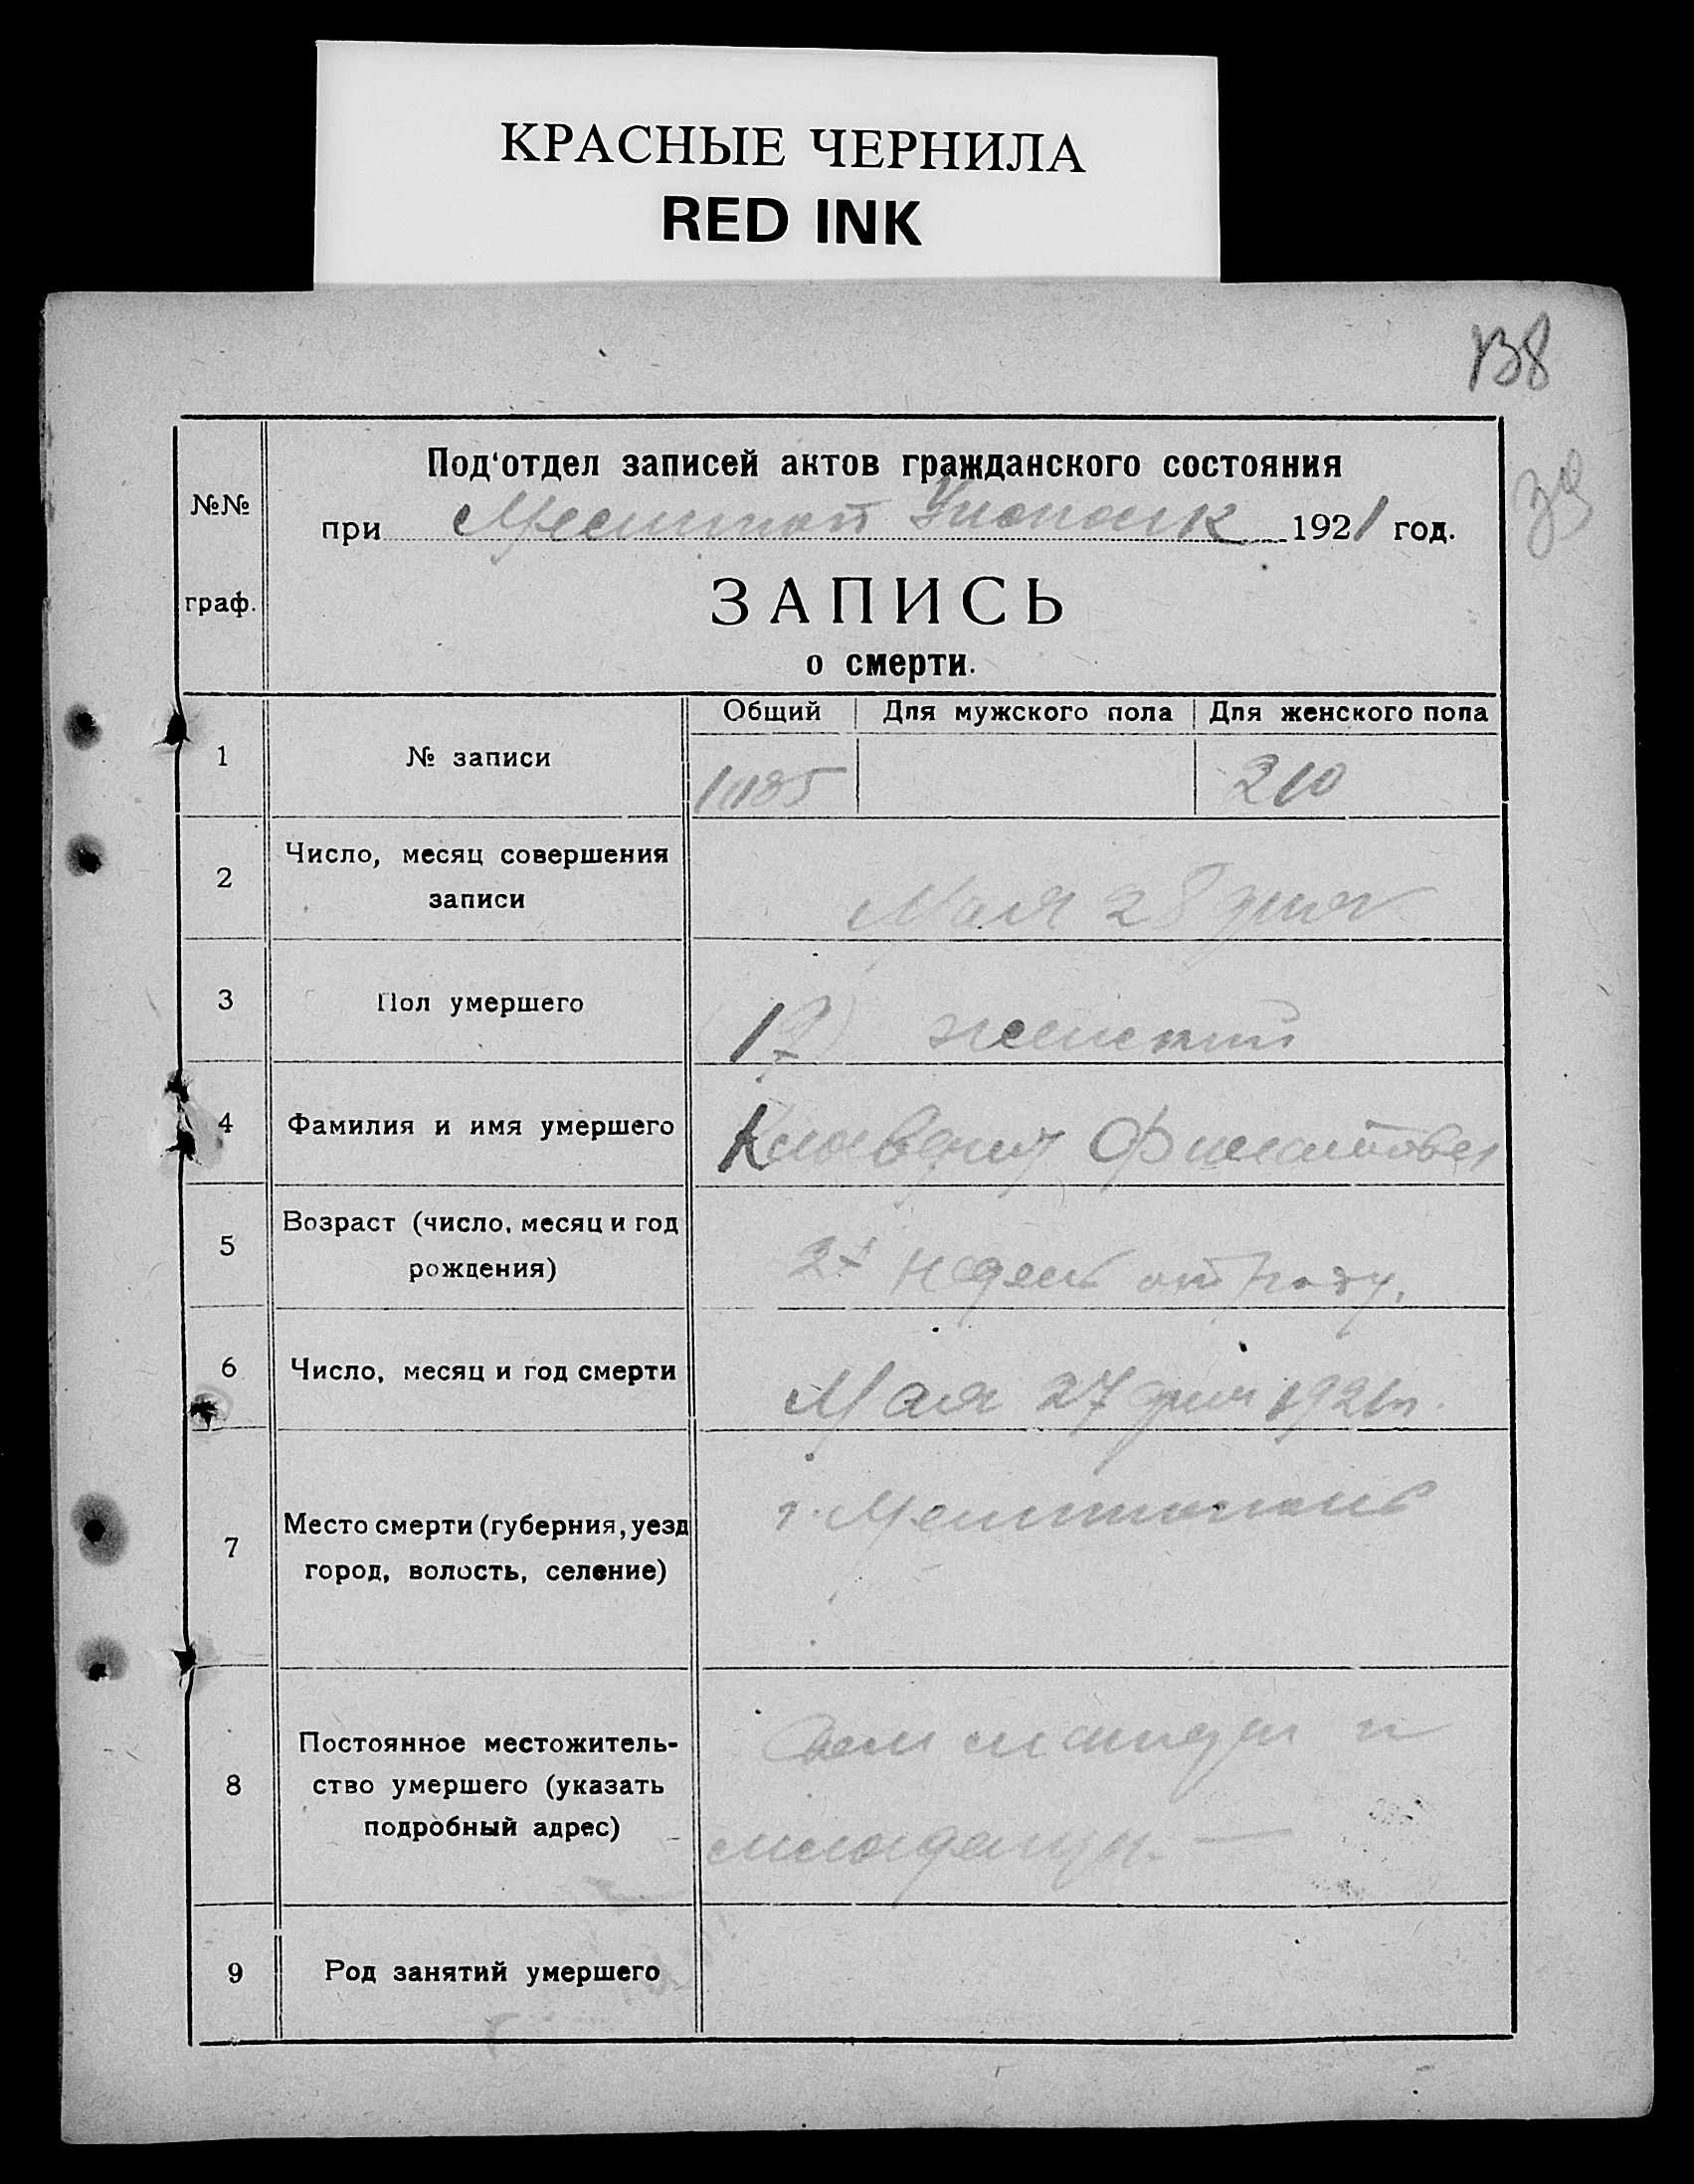 КРАСНЫЕ ЧЕРНИЛА
RED INK
138
39
Под'отдел записей актов гражданского состояния
при 1921 год.
№№
граф.
ЗАПИСЬ
о смерти.
Общий Для мужского пола Для женского пола
1 № записи 210
2 Число, месяц совершения
записи Мая 28 дня
3 Пол умершего женский
4 Фамилия и имя умершего Клавдия Филатова
5 Возраст (число, месяц и год
рождения) 2х недель от роду.
6 Число, месяц и год смерти Мая 27 дня 1921 г.
7 Место смерти (губерния, уезд
город, волость, селение) г. Мелитополь
8 Постоянное местожитель-
ство умершего (указать
подробный адрес)
9 Род занятий умершего